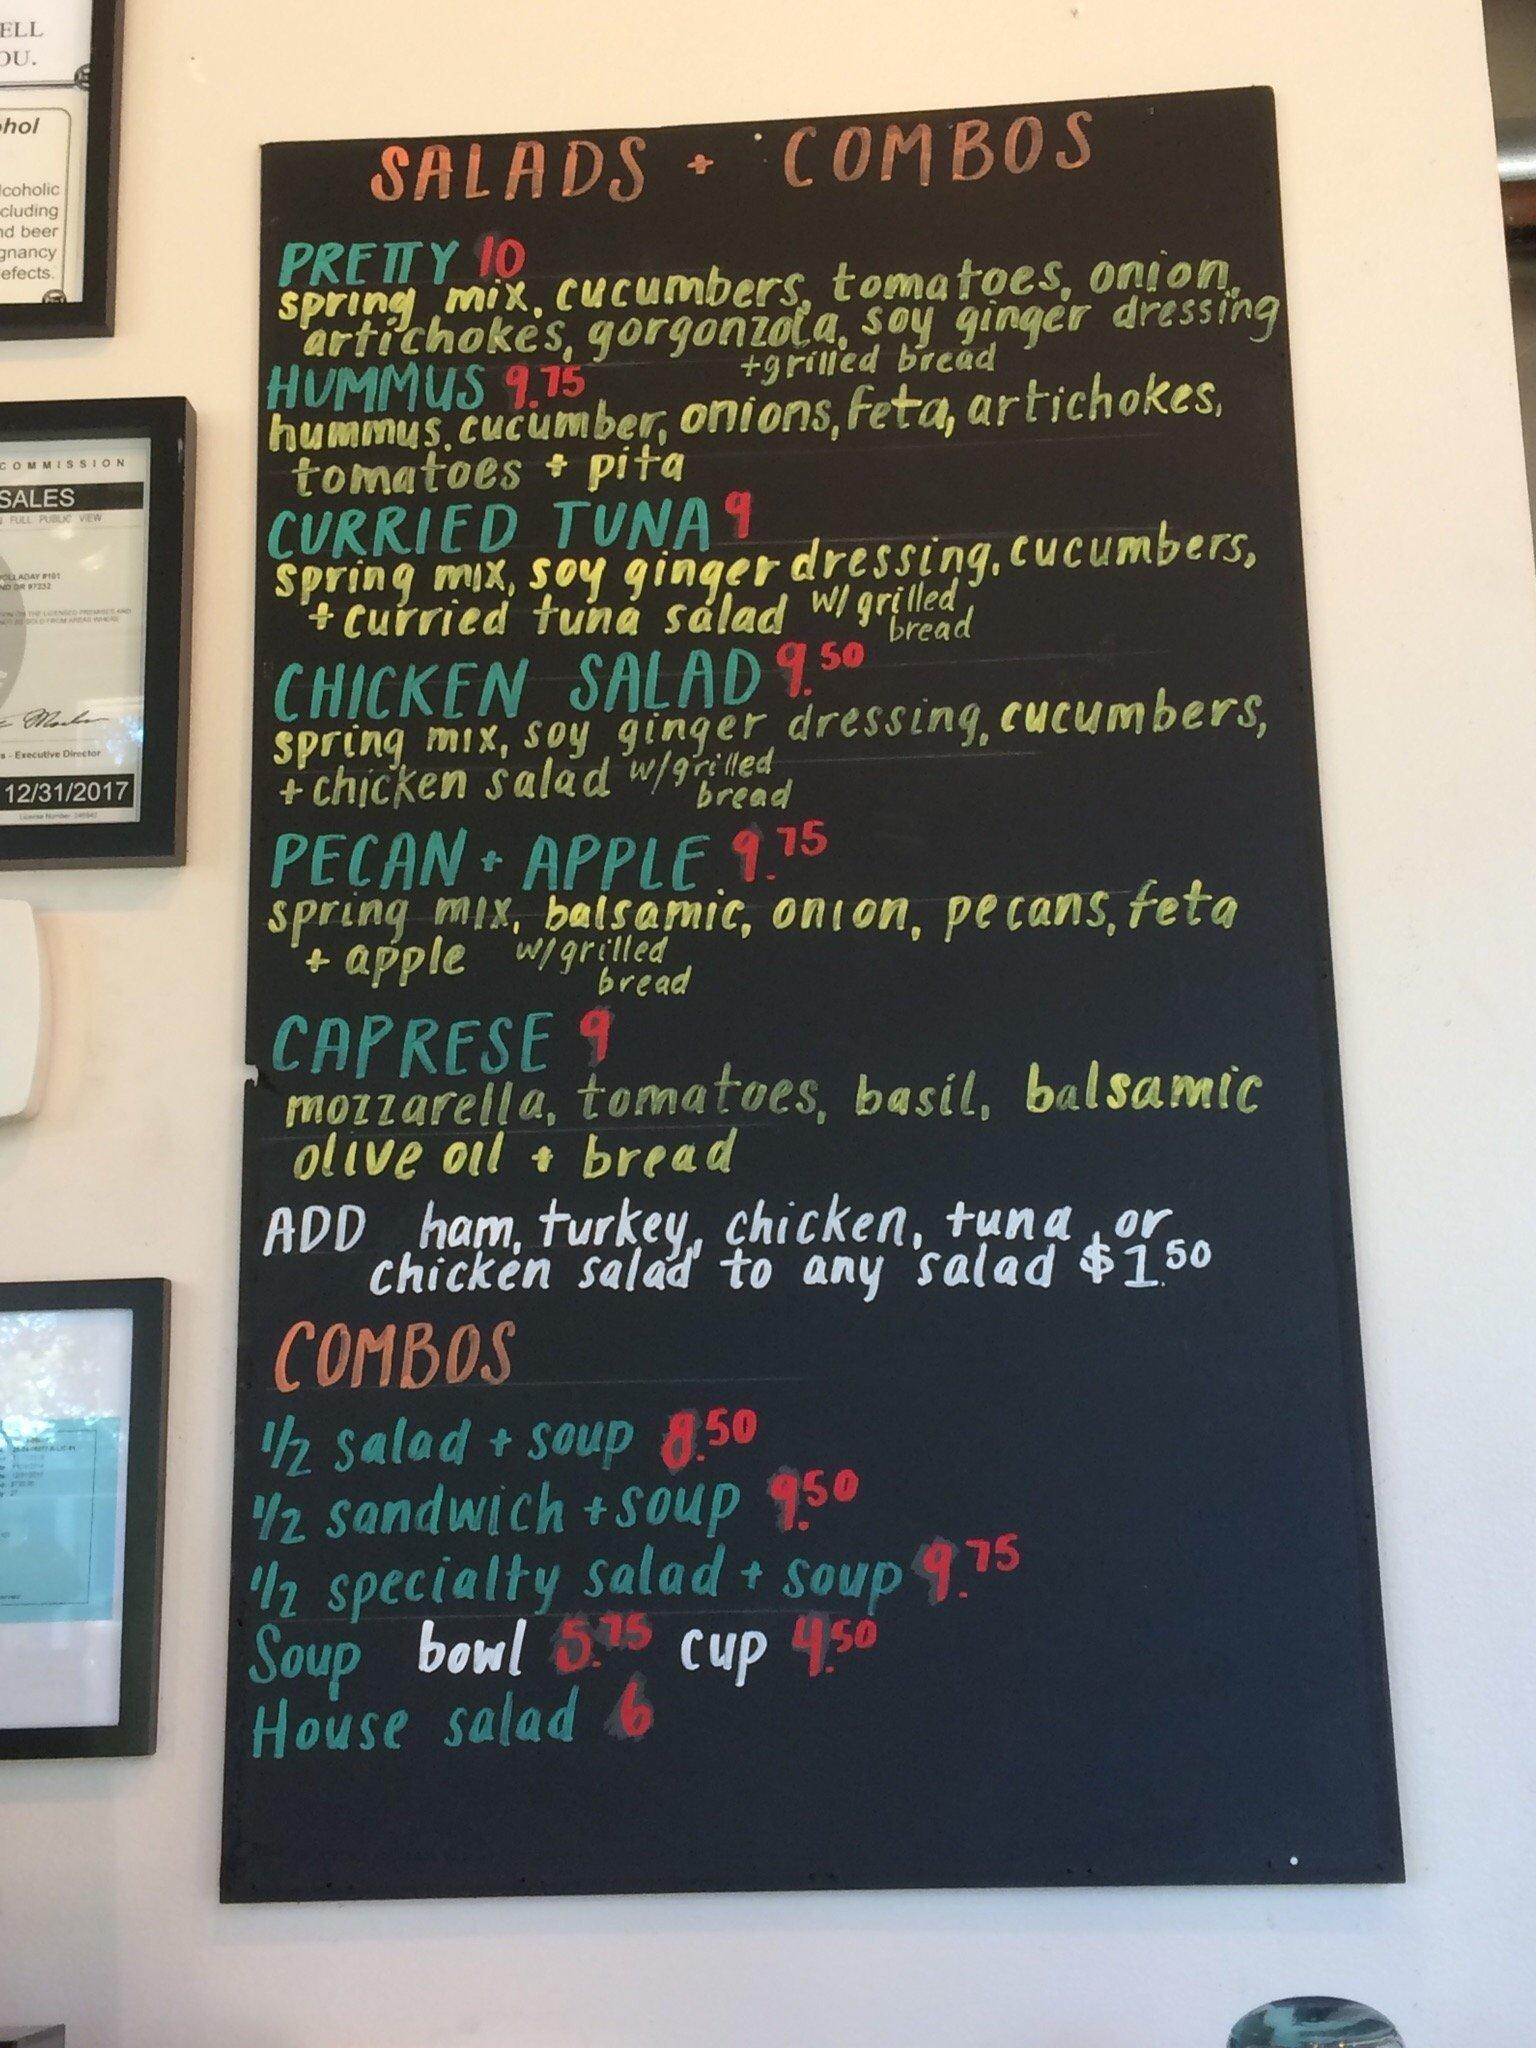 ELL
OU.
ohol
lcoholic
cluding
nd beer
gnancy
efects.
COMMISSION
SALES
FULL PUBLIC VIEW
OLLADAY #101
ND OR 97232
s - Executive Director
12/31/2017
SALADS + COMBOS
PRETTY 10
spring mix, cucumbers, tomatoes, onion,
artichokes, gorgonzola, soy ginger dressing
+grilled bread
HUMMUS 9.75
hummus, cucumber, onions, feta, artichokes,
tomatoes + pita
CURRIED TUNA 9
spring mix, soy ginger dressing, cucumbers,
+ curried tuna salad w/ grilled
bread
CHICKEN SALAD 9.50
spring mix, soy ginger dressing, cucumbers,
+ chicken salad w/grilled
bread
PECAN + APPLE 9.75
spring mix, balsamic, onion, pecans, feta
+ apple w/grilled
bread
CAPRESE 9
mozzarella, tomatoes, basil, balsamic
olive oil + bread
ADD ham, turkey, chicken, tuna, or
chicken salad to any salad $1.50
COMBOS
1/2 salad + soup 8.50
1/2 sandwich + soup 9.50
1/2 specialty salad + soup 9.75
Soup bowl 5.75 cup 4.50
House salad 6